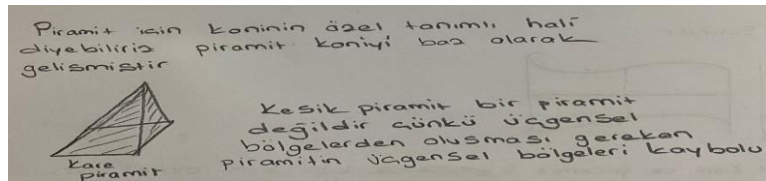 Piramit için koninin özel tanımlı hali
diyebiliriz piramit koniyi baz olarak
gelişmiştir
Kesik piramit bir piramit
değildir çünkü üçgensel
bölgelerden oluşması gereken
piramitin üçgensel bölgeleri kaybolu
Kare
piramit